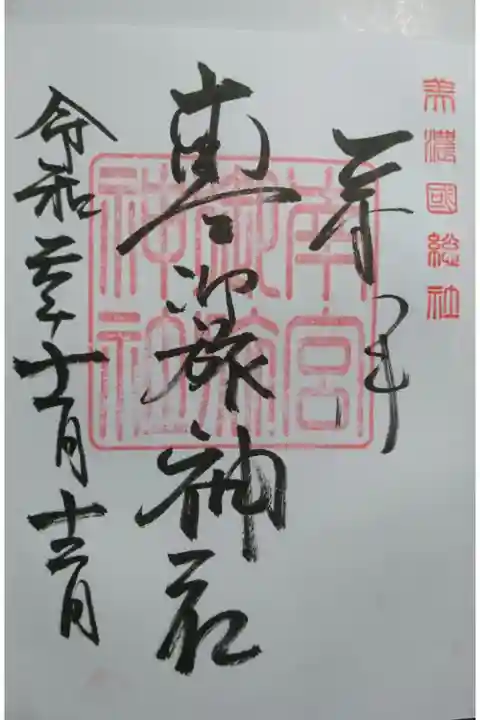 美濃國総社
奉拝
南宮御旅神社
南宮
御旅
神社
令和元年十一月十三日